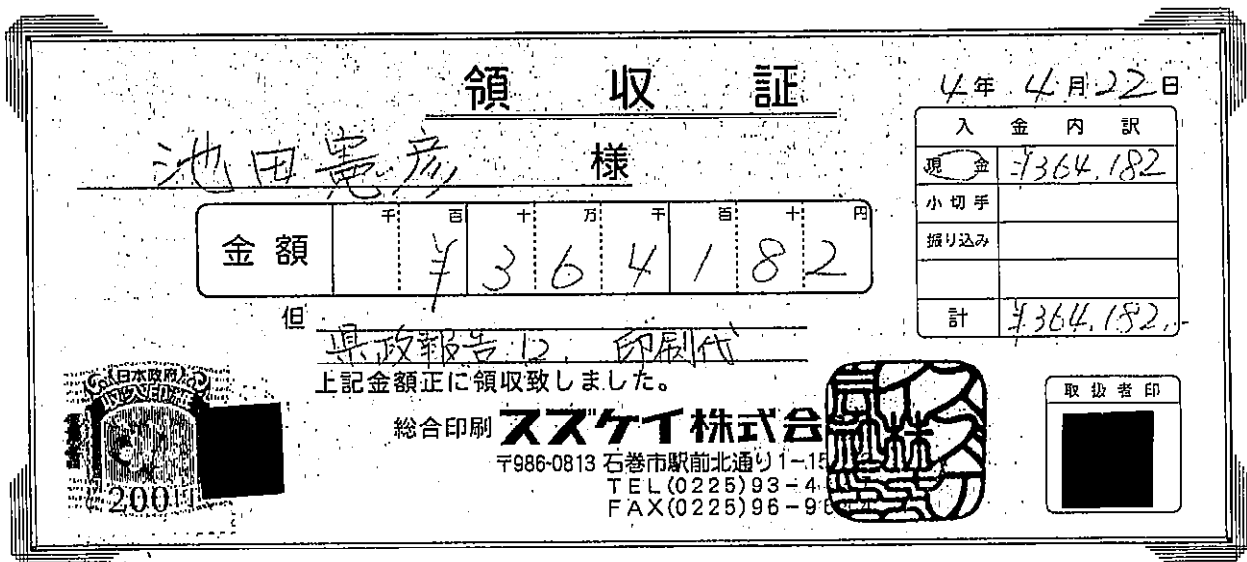 領収証
4年4月22日
池田憲彦 様
入金内訳
現金 ¥364,182
小切手
振り込み
計 ¥364,182.-
千 百 十 万 千 百 十 円
金額 ¥364182
但 県政報告12. 印刷代
上記金額正に領収致しました。
日本政府
200
総合印刷 スズケイ株式会
〒986-0813 石巻市駅前北通り1-15
TEL(0225)93-4
FAX(0225)96-9
取扱者印